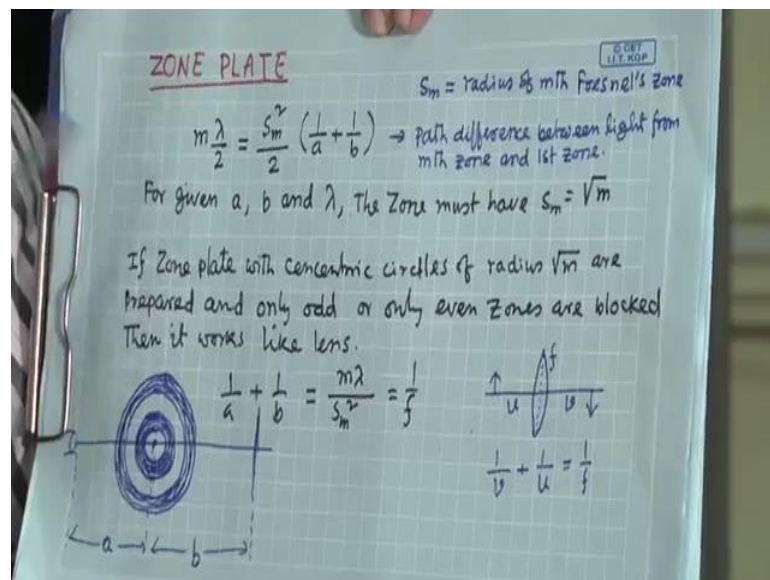 ZONE PLATE
© CET
I.I.T. KGP
Sm = radius of mth Fresnel's zone
m λ/2 = Sm²/2 (1/a + 1/b) → Path difference between light from
mth zone and 1st zone.
For given a, b and λ, The Zone must have Sm = √m
If Zone plate with concentric circles of radius √m are
Prepared and only odd or only even zones are blocked
Then it works like lens.
1/a + 1/b = mλ/Sm² = 1/f
f
u
v
1/v + 1/u = 1/f
a
b